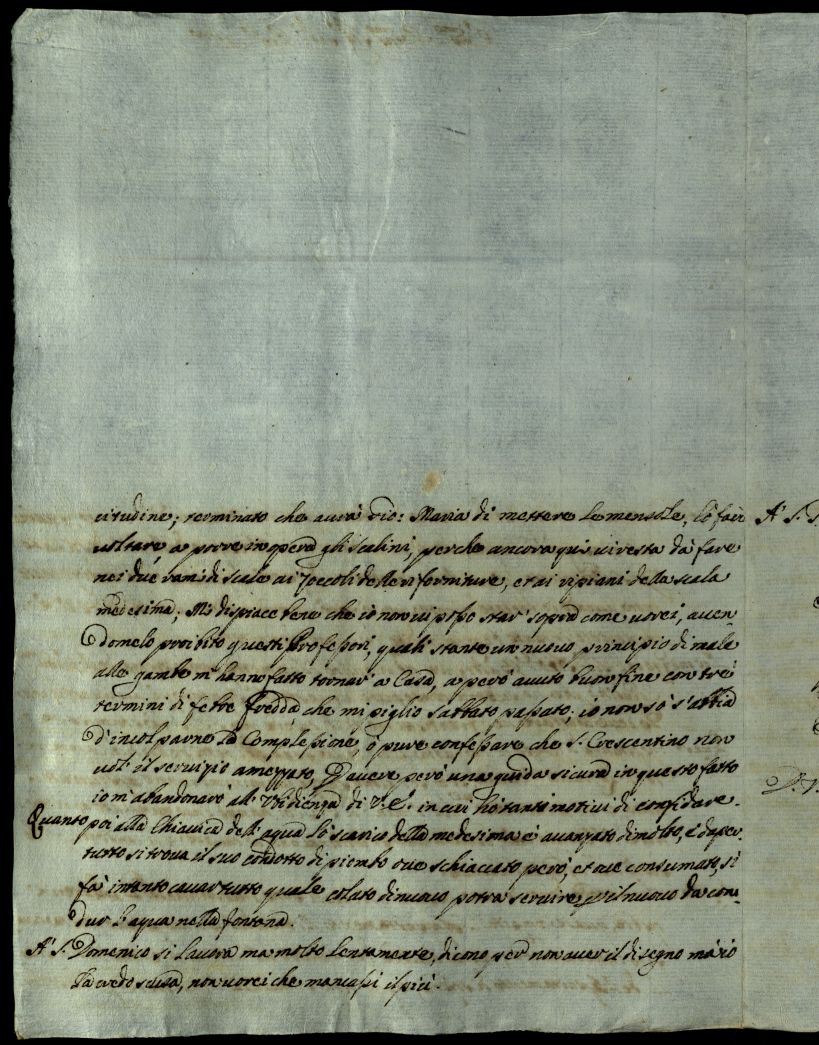 citudine; terminato che aurà Gio: Maria di mettere le mensole, lo farò
voltare a porre in opera gli scalini, perche ancora qui vi resta da fare
nei due rami di scale ai zoccoli delle riforniture, et ai ripiani della scala
medesima; Mi dispiace bene che io non vi posso star' sopra come vorei, auen
domelo proibito questi Professori, quali stante un nuouo principio di male
alle gambe m'hanno fatto tornar' a Casa, a però auuto buon fine con trè
termini di febre fredda che mi piglio sabbato passato; io non sò s'abbia
d'incolparne la Complessione, ò pure confessare che S. Crescentino non
vol' il seruizio amezzato, P auere però una guida sicura in questo fatto
io m'abandonarò all' Vbidienza di V.E. in cui hò tanti motiui di confidare.
Quanto poi alla Chiauica dell' aqua lo scarico della medesima è auanzato di molto, e da per
tutto si troua il suo condotto di piombo oue schiacciato però, et oue consumato, si
fà intanto cauar tutto quale colato di nuouo potra seruire p il nuouo da con-
dur l'aqua nella fontana.
A' S. Domenico si lauora ma molto lentamente, dicono per non auer il disegno mà io
la credo scusa, non vorei che mancassi
A' S.